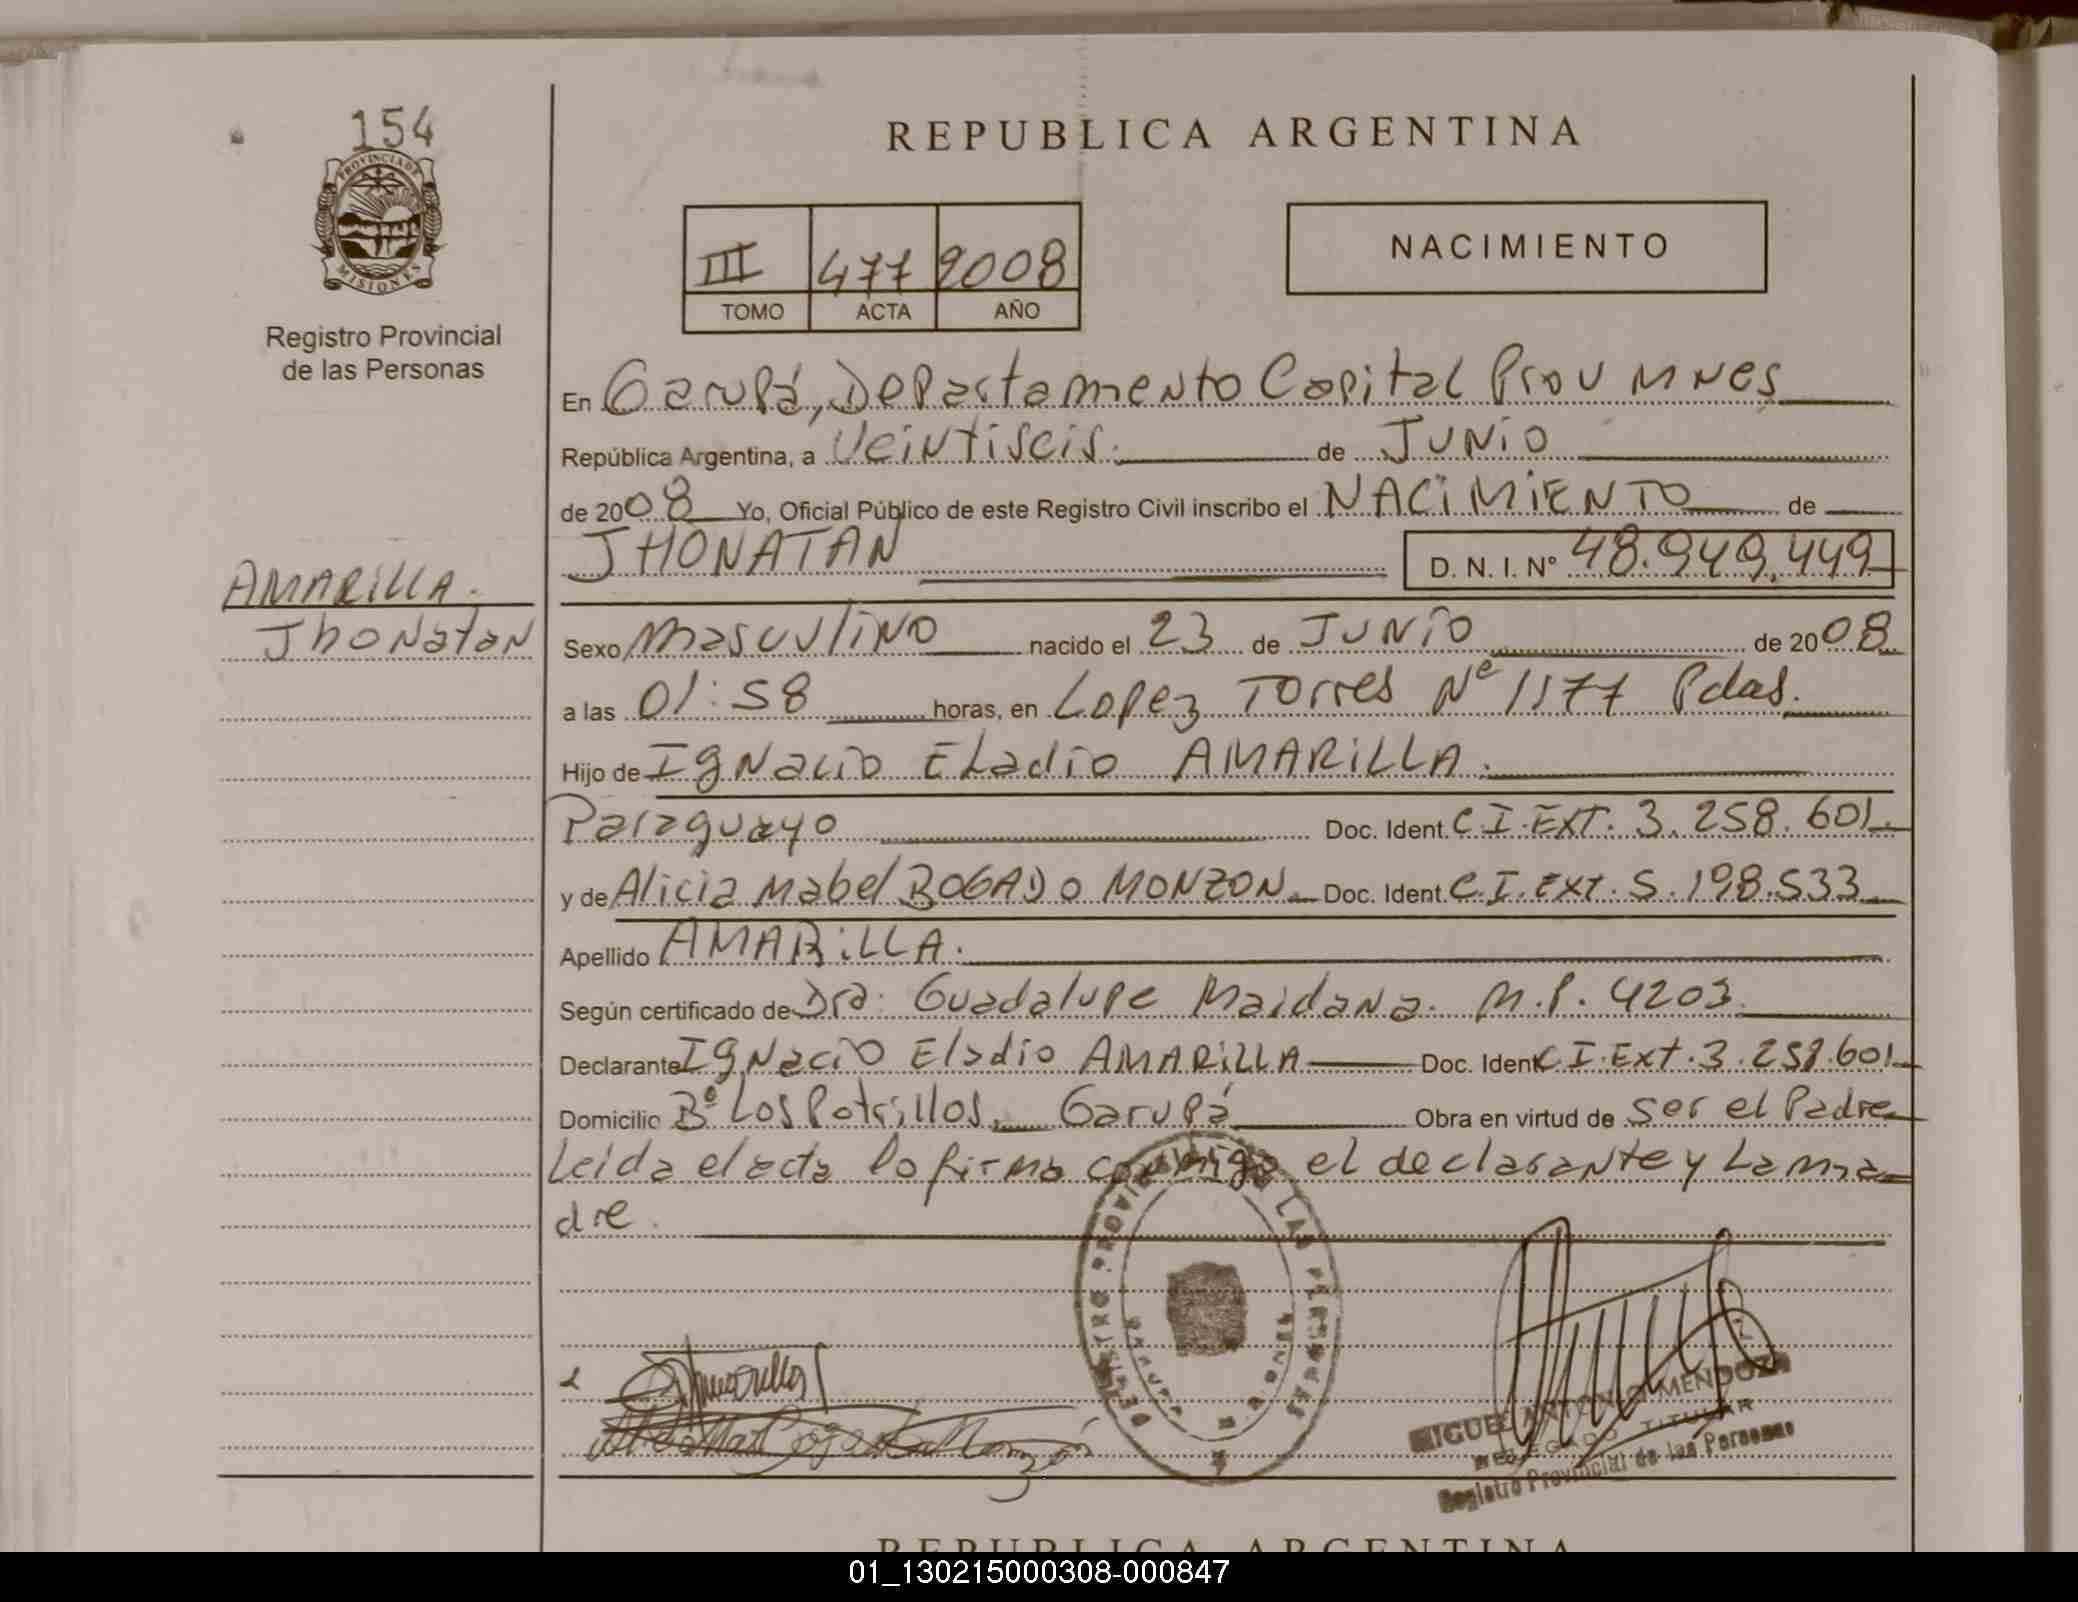 154
PROVINCIA DE
MISIONES
Registro Provincial
de las Personas
AMARILLA.
Jhonatan
REPUBLICA ARGENTINA
III 477 2008
TOMO ACTA AÑO
NACIMIENTO
En Garupá, Departamento Capital Prov Mnes
República Argentina, a Veintiseis. de Junio
de 2008 Yo, Oficial Público de este Registro Civil inscribo el NACIMIENTO de
JHONATAN D. N. I. Nº 48.949.449
Sexo Masculino nacido el 23 de Junio de 2008
a las 01:58 horas, en Lopez Torres Nº 1177 Pdas.
Hijo de Ignacio Eladio AMARILLA.
Paraguayo Doc. Ident. C.I.EXT. 3.258.601.
y de Alicia Mabel BOGADO MONZON. Doc. Ident. C.I.Ext. 5.198.533
Apellido AMARILLA.
Según certificado de Dra. Guadalupe Maidana. M.P. 4203
Declarante Ignacio Eladio AMARILLA Doc. Ident. C.I.Ext. 3.258.601
Domicilio Bº Los Potrillos, Garupá Obra en virtud de ser el Padre
Leida el acta lo firma conmigo el declarante y La ma
dre.
REGISTRO PROVINCIAL DE LAS PERSONAS
GARUPA
MIGUEL ANTONIO MENDOZA
DELEGADO TITULAR
Registro Provincial de las Personas
REPUBLICA ARGENTINA
01_130215000308-000847